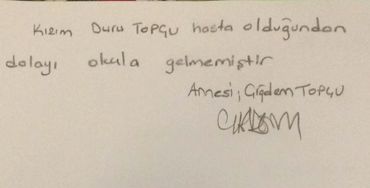 Kızım Duru TOPÇU hasta olduğundan
dolayı okula gelmemiştir
Annesi; Çiğdem TOPÇU